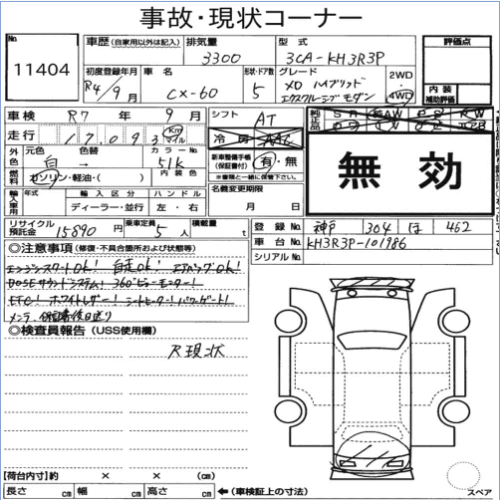 事故・現状コーナー
No. 11404
車歴 (自家用以外は記入) 排気量 3300 型式 3CA-KH3R3P 評価点
初度登録年月 R4/9月 車名 CX-60 形状・ドア数 5 グレード XD ハイブリッド エクスクルーシブモダン 2WD 4WD 内装 補助評価
車検 R7年 9月 シフト AT
走行 17,093 Km マイル 冷房
外色 元色 白 色替 → カラーNo. 51K 新車整備手帳 (保証書付) 有・無
燃料 ガソリン・軽油・( ) 内装色
無効
輸入車用 年式 輸入区分 ディーラー・並行 ハンドル 左・右 名義変更期限 月 日
リサイクル預託金 15890円 乗車定員 5人 積載量 t
登録No. 神戸 304 ほ 462
車台No. KH3R3P-101986
シリアルNo.
◎注意事項 (修復・不具合箇所および状態等)
エンジンスタートOK! 自走OK! エアバッグOK!
BOSEサウンドシステム! 360°ビューモニター!
ETC! ホワイトレザー! シートヒーター! パワーゲート!
◎検査員報告 (USS使用欄)
R現状
【荷台内寸】約 × ×
長さ cm 幅 cm 高さ cm ←(車検証上の寸法)
スペア